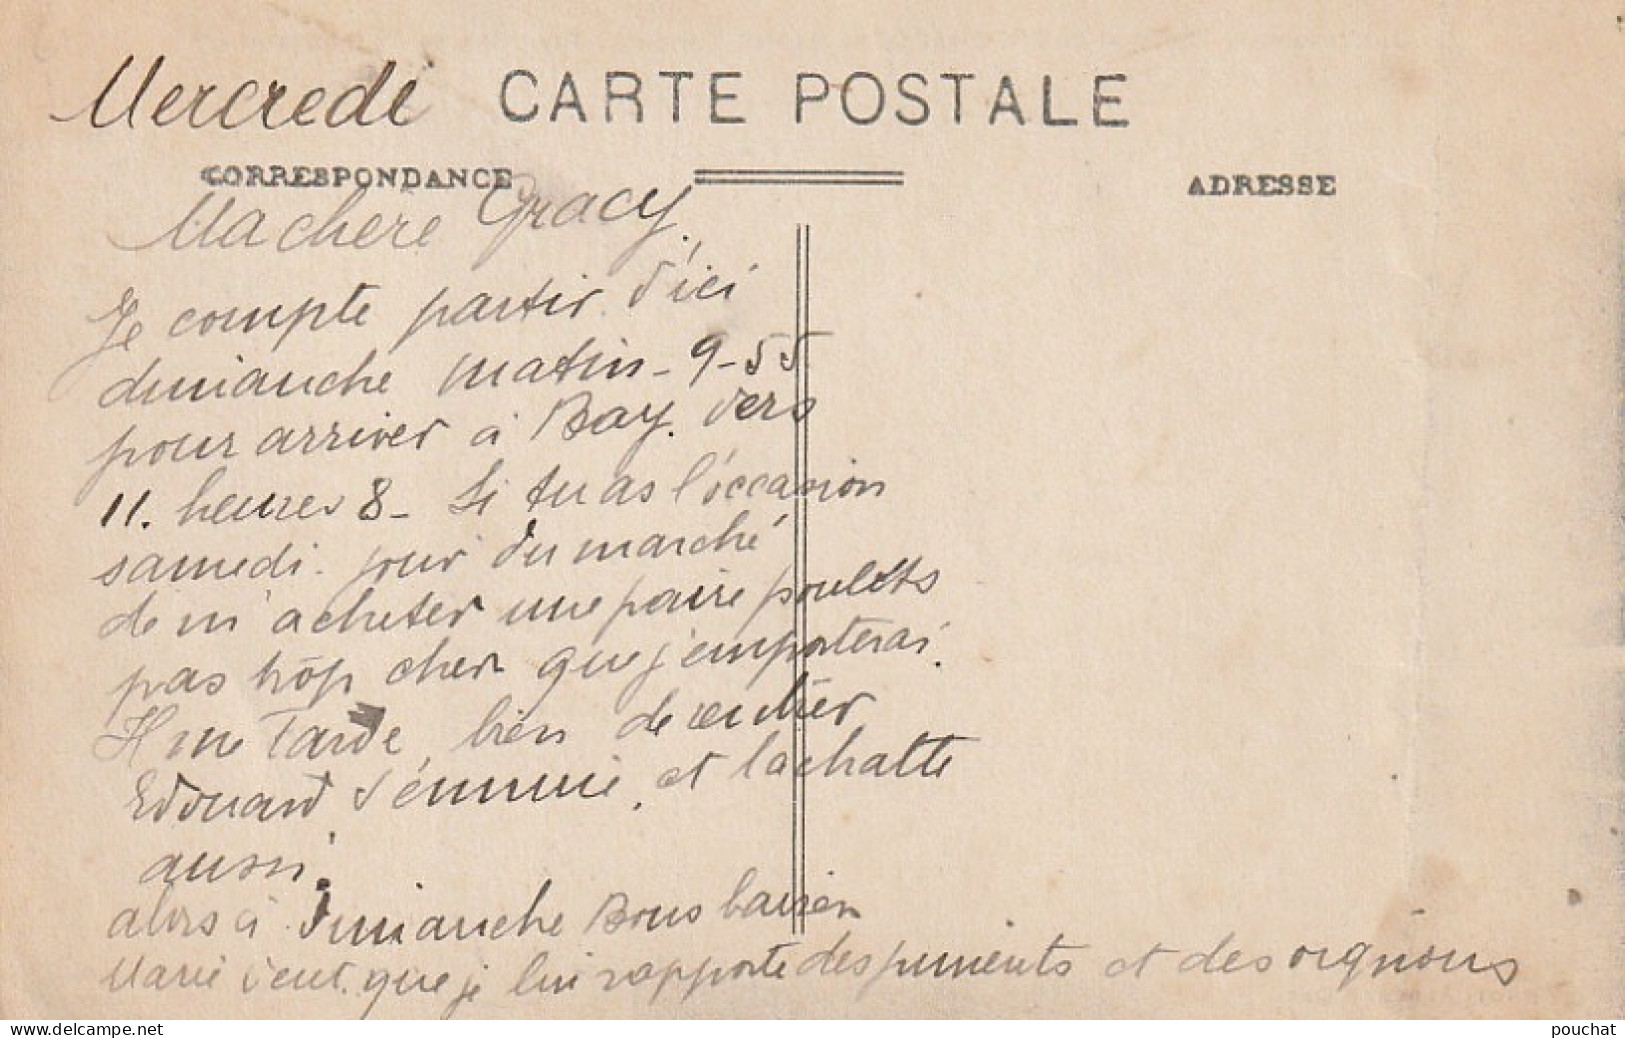 Mercredi CARTE POSTALE
CORRESPONDANCE
ADRESSE
Ma chere Gracy,
Je compte partir d'ici
dimanche matin - 9-55
pour arriver à Bay. vers
11. heures 8 - Si tu as l'occasion
samedi. jour du marché
de m'acheter une paire poulets
pas trop cher que j'emporterai.
Il me tarde bien de
Edouard et la chatte
aussi.
alors à dimanche Bons baisers
Marie veut que je lui rapporte des piments et des oignons
delcampe.net/website
pouchat